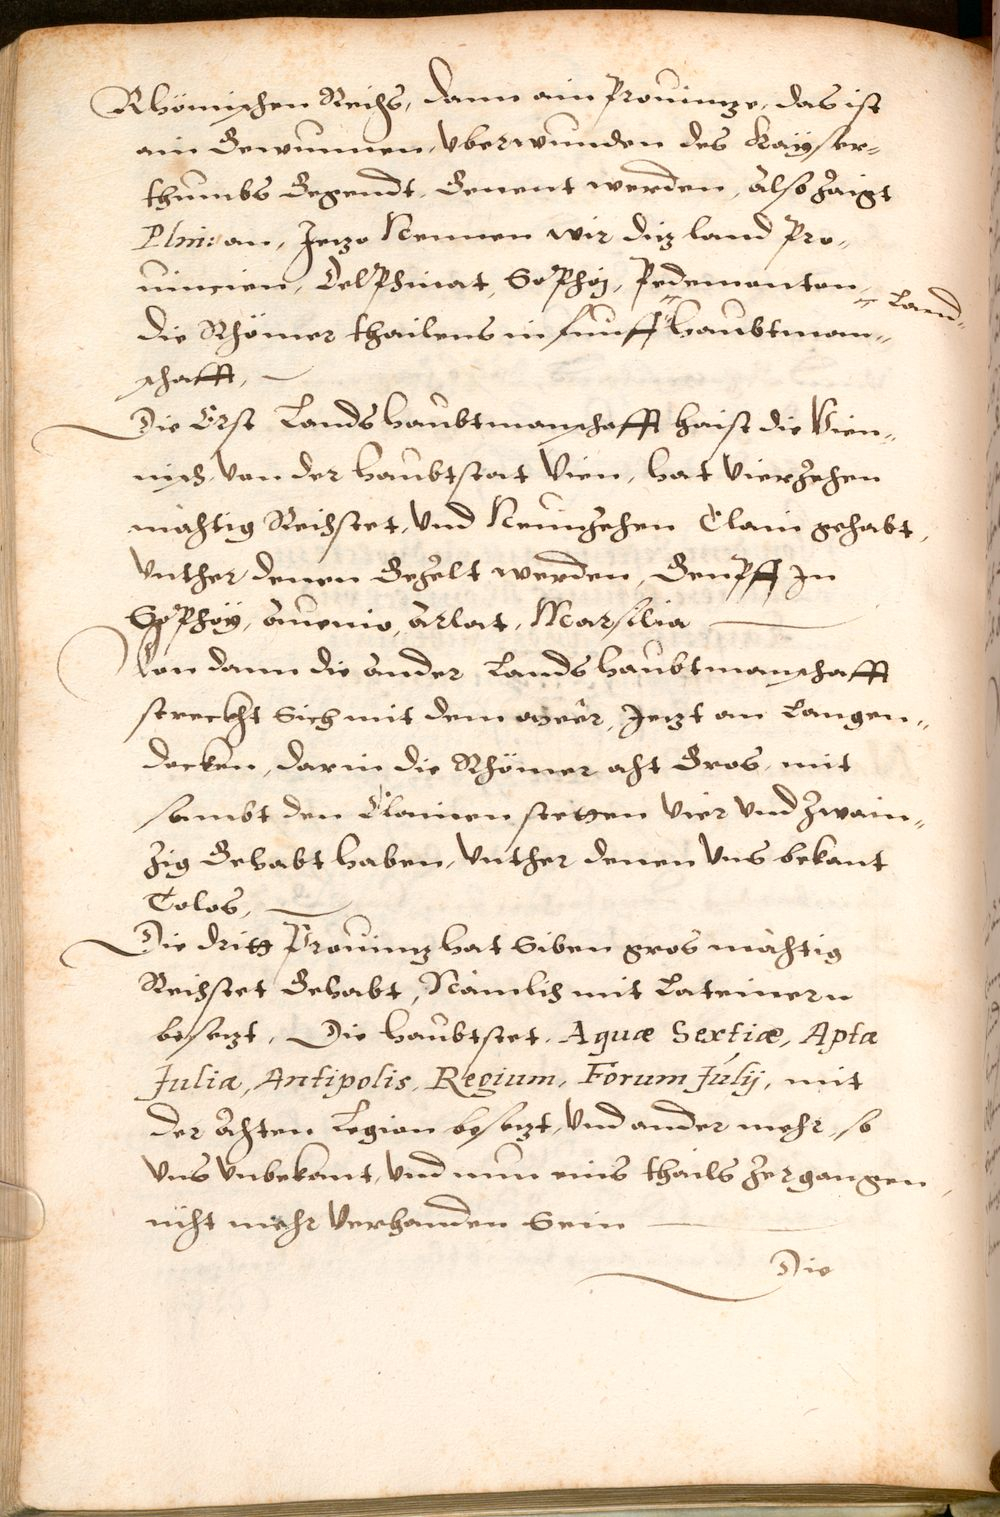 Rhömischen Reichs, dann ain Prouintze, das ist
ain Gewunnen, vberwunden des Kayser-
thumbs Gegendt, Genent werden, also zaigt
Plini: an, Jetzo Nennen wir ditz land Pro-
uincien, Delphinat, Sophoy, Pedemonton,
Die Rhömer thailens in funff Land-
haubtman-
schafft,
Die Erst Landshaubtmanschafft haist die Vien-
nisch, von der haubtstat Vien, hat vierzehen
mächtig Reichstet, vnd Neunzehen Clain gehabt,
vnther denen Gezelt werden, Genpff In
Sophoy, Auenio, Arlat, Marsilia
Von dann die ander Landshaubtmanschafft
streckht Sich mit dem meer, Jetzt an Langen-
decken, darin die Rhömer acht Gros, mit
sambt den Clainen stetten vier vnd zwain-
zig Gehabt haben, vnther denen vns bekant
Tolos,
Die dritt Prouintz hat Siben gros mächtig
Reichstet Gehabt, Nämlich mit Lateinern
besetzt, Die haubtstet, Aquæ Sextiæ, Apta
Julia, Antipolis, Regium, Forum Julij, mit
der achten Legion besetzt, vnd ander mehr, so
vns vnbekant, vnd nun eins thails zergangen,
nicht mehr verhanden Sein
Die